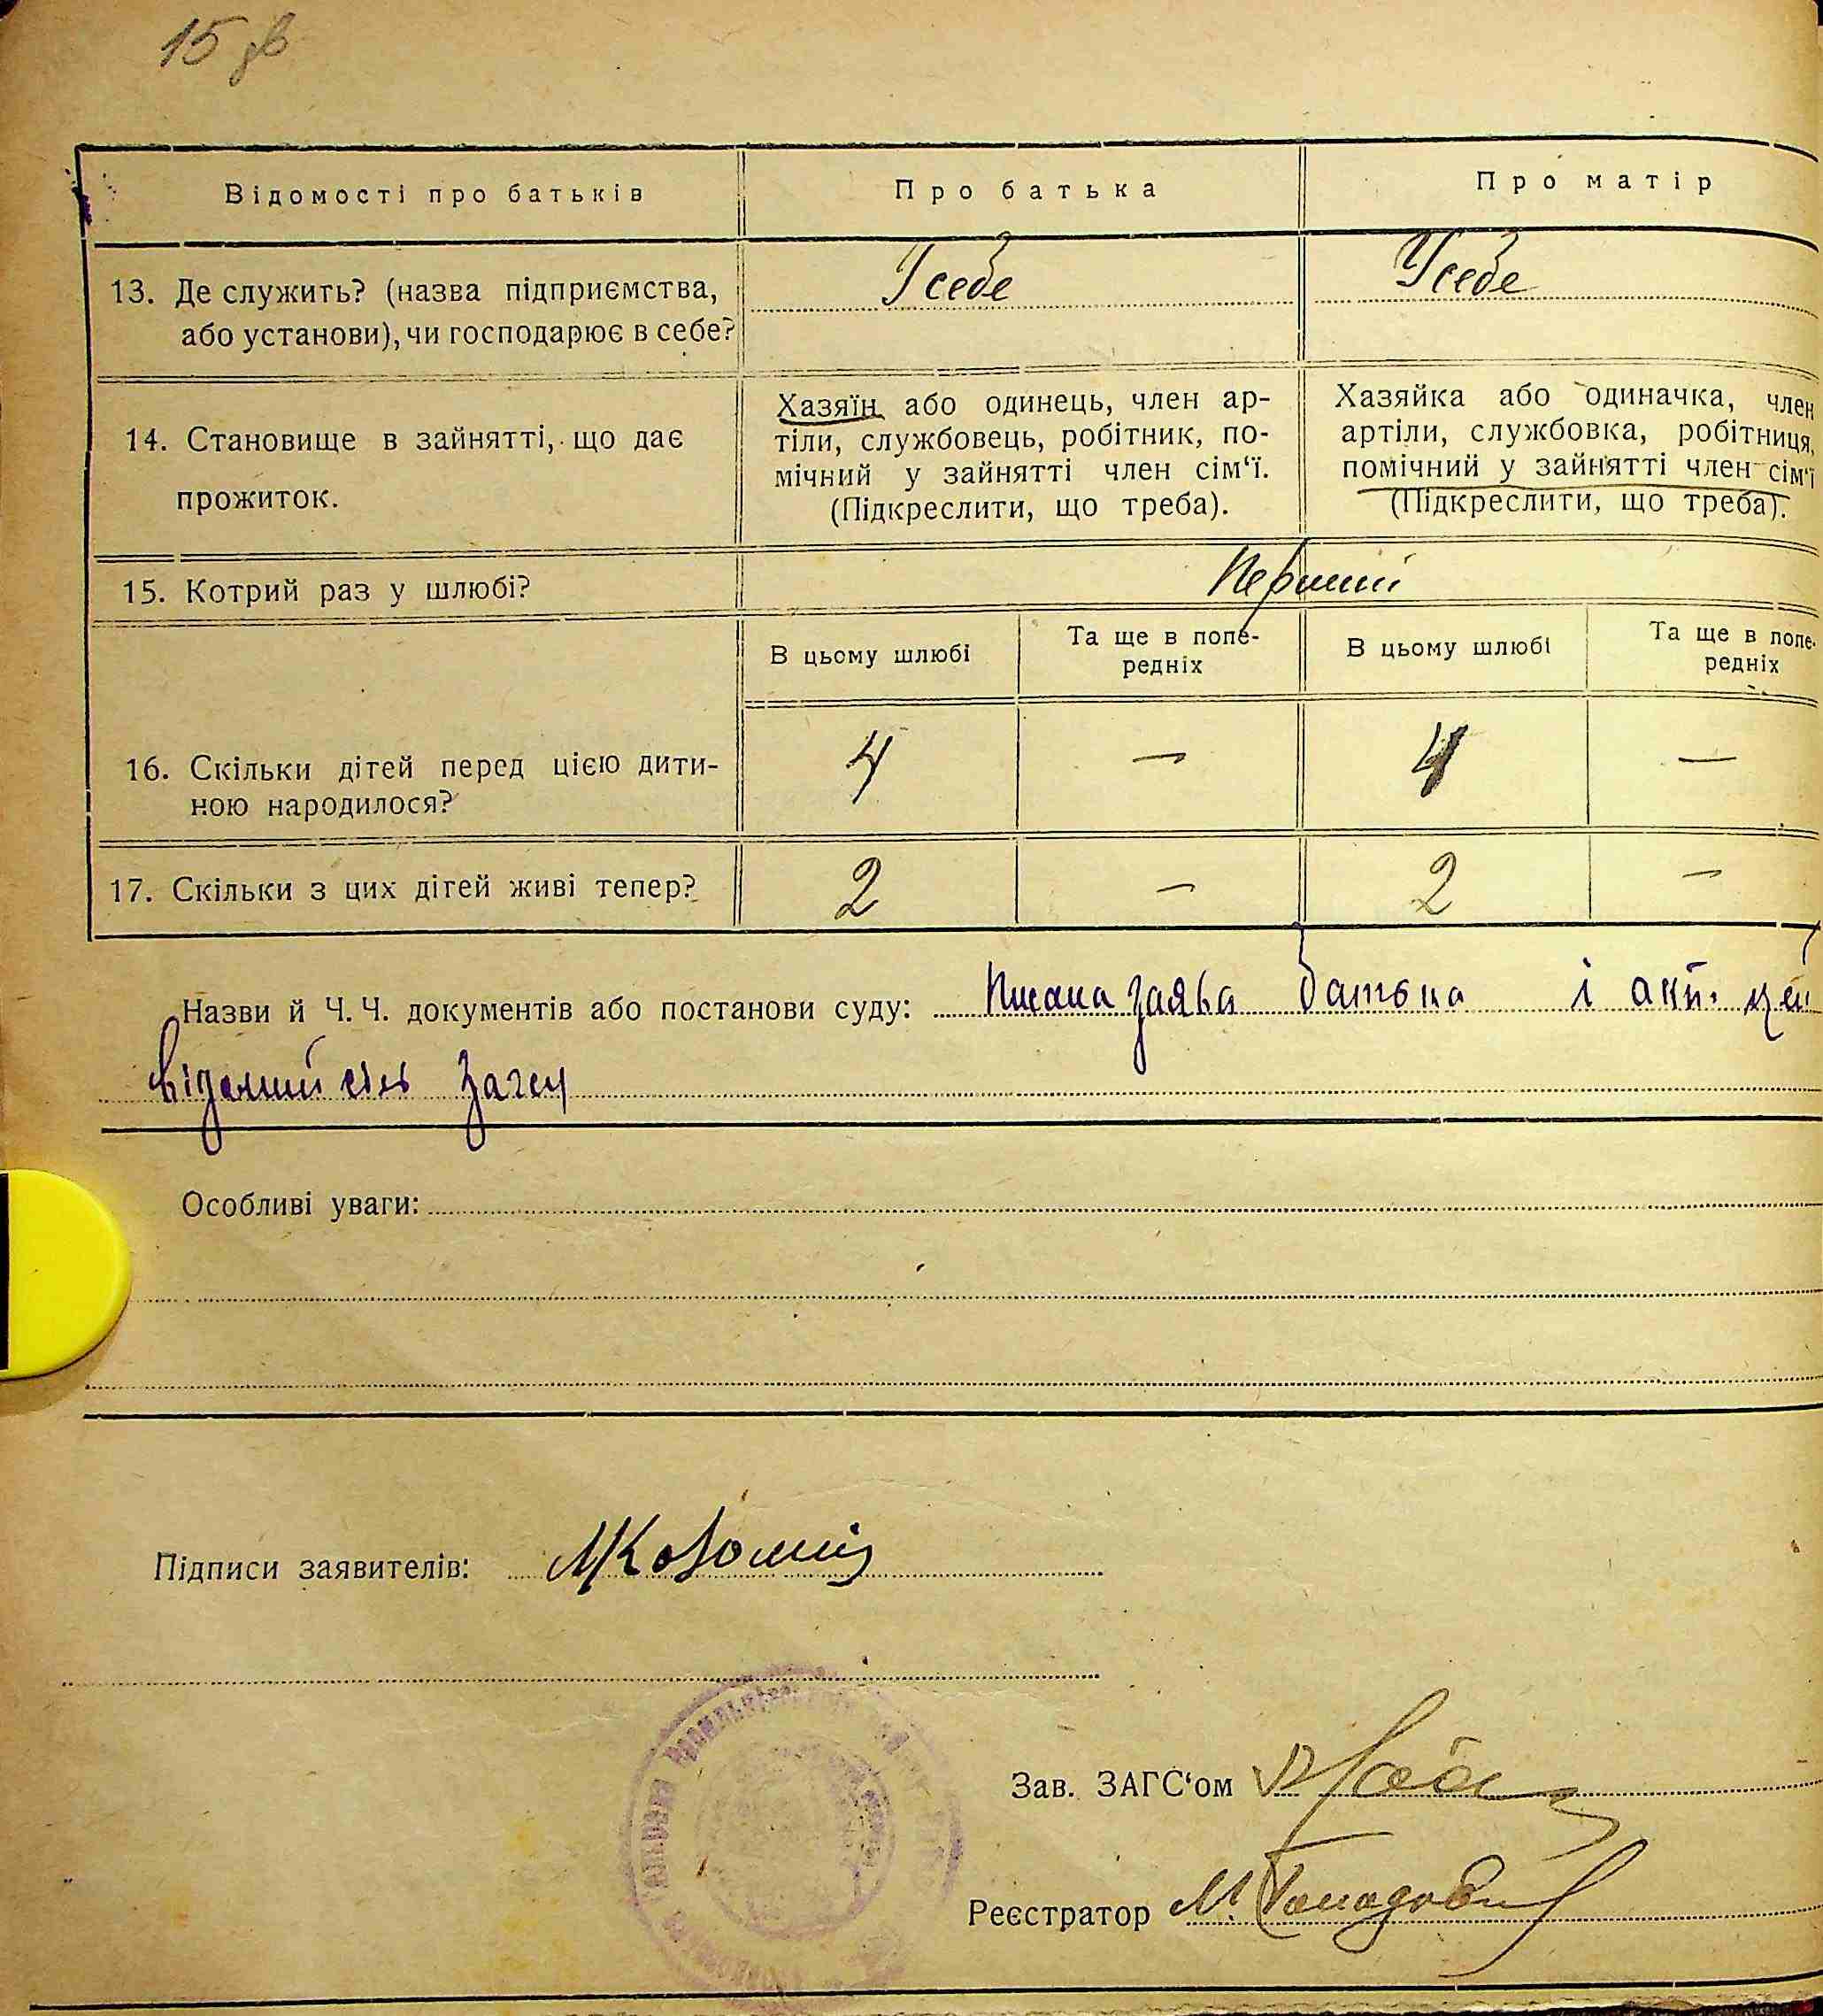 15 зв
Відомості про батьків
Про батька
Про матір
13. Де служить? (назва підприємства,
або установи), чи господарює в себе?
У себе
У себе
14. Становище в зайнятті, що дає
прожиток.
Хазяїн або одинець, член ар-
тіли, службовець, робітник, по-
мічний у зайнятті член сім‘ї.
(Підкреслити, що треба).
Хазяйка або одиначка, член
артіли, службовка, робітниця,
помічний у зайнятті член сім‘ї
(Підкреслити, що треба).
15. Котрий раз у шлюбі?
Перший
В цьому шлюбі
Та ще в попе-
редніх
В цьому шлюбі
Та ще в попе-
редніх
16. Скільки дітей перед цією дити-
ною народилося?
4 — 4 —
17. Скільки з цих дітей живі тепер?
2 — 2 —
Назви й Ч. Ч. документів або постанови суду: заява батька і акт. цей
загсу
Особливі уваги:
Підписи заявителів:
Зав. ЗАГС‘ом
Реєстратор М.